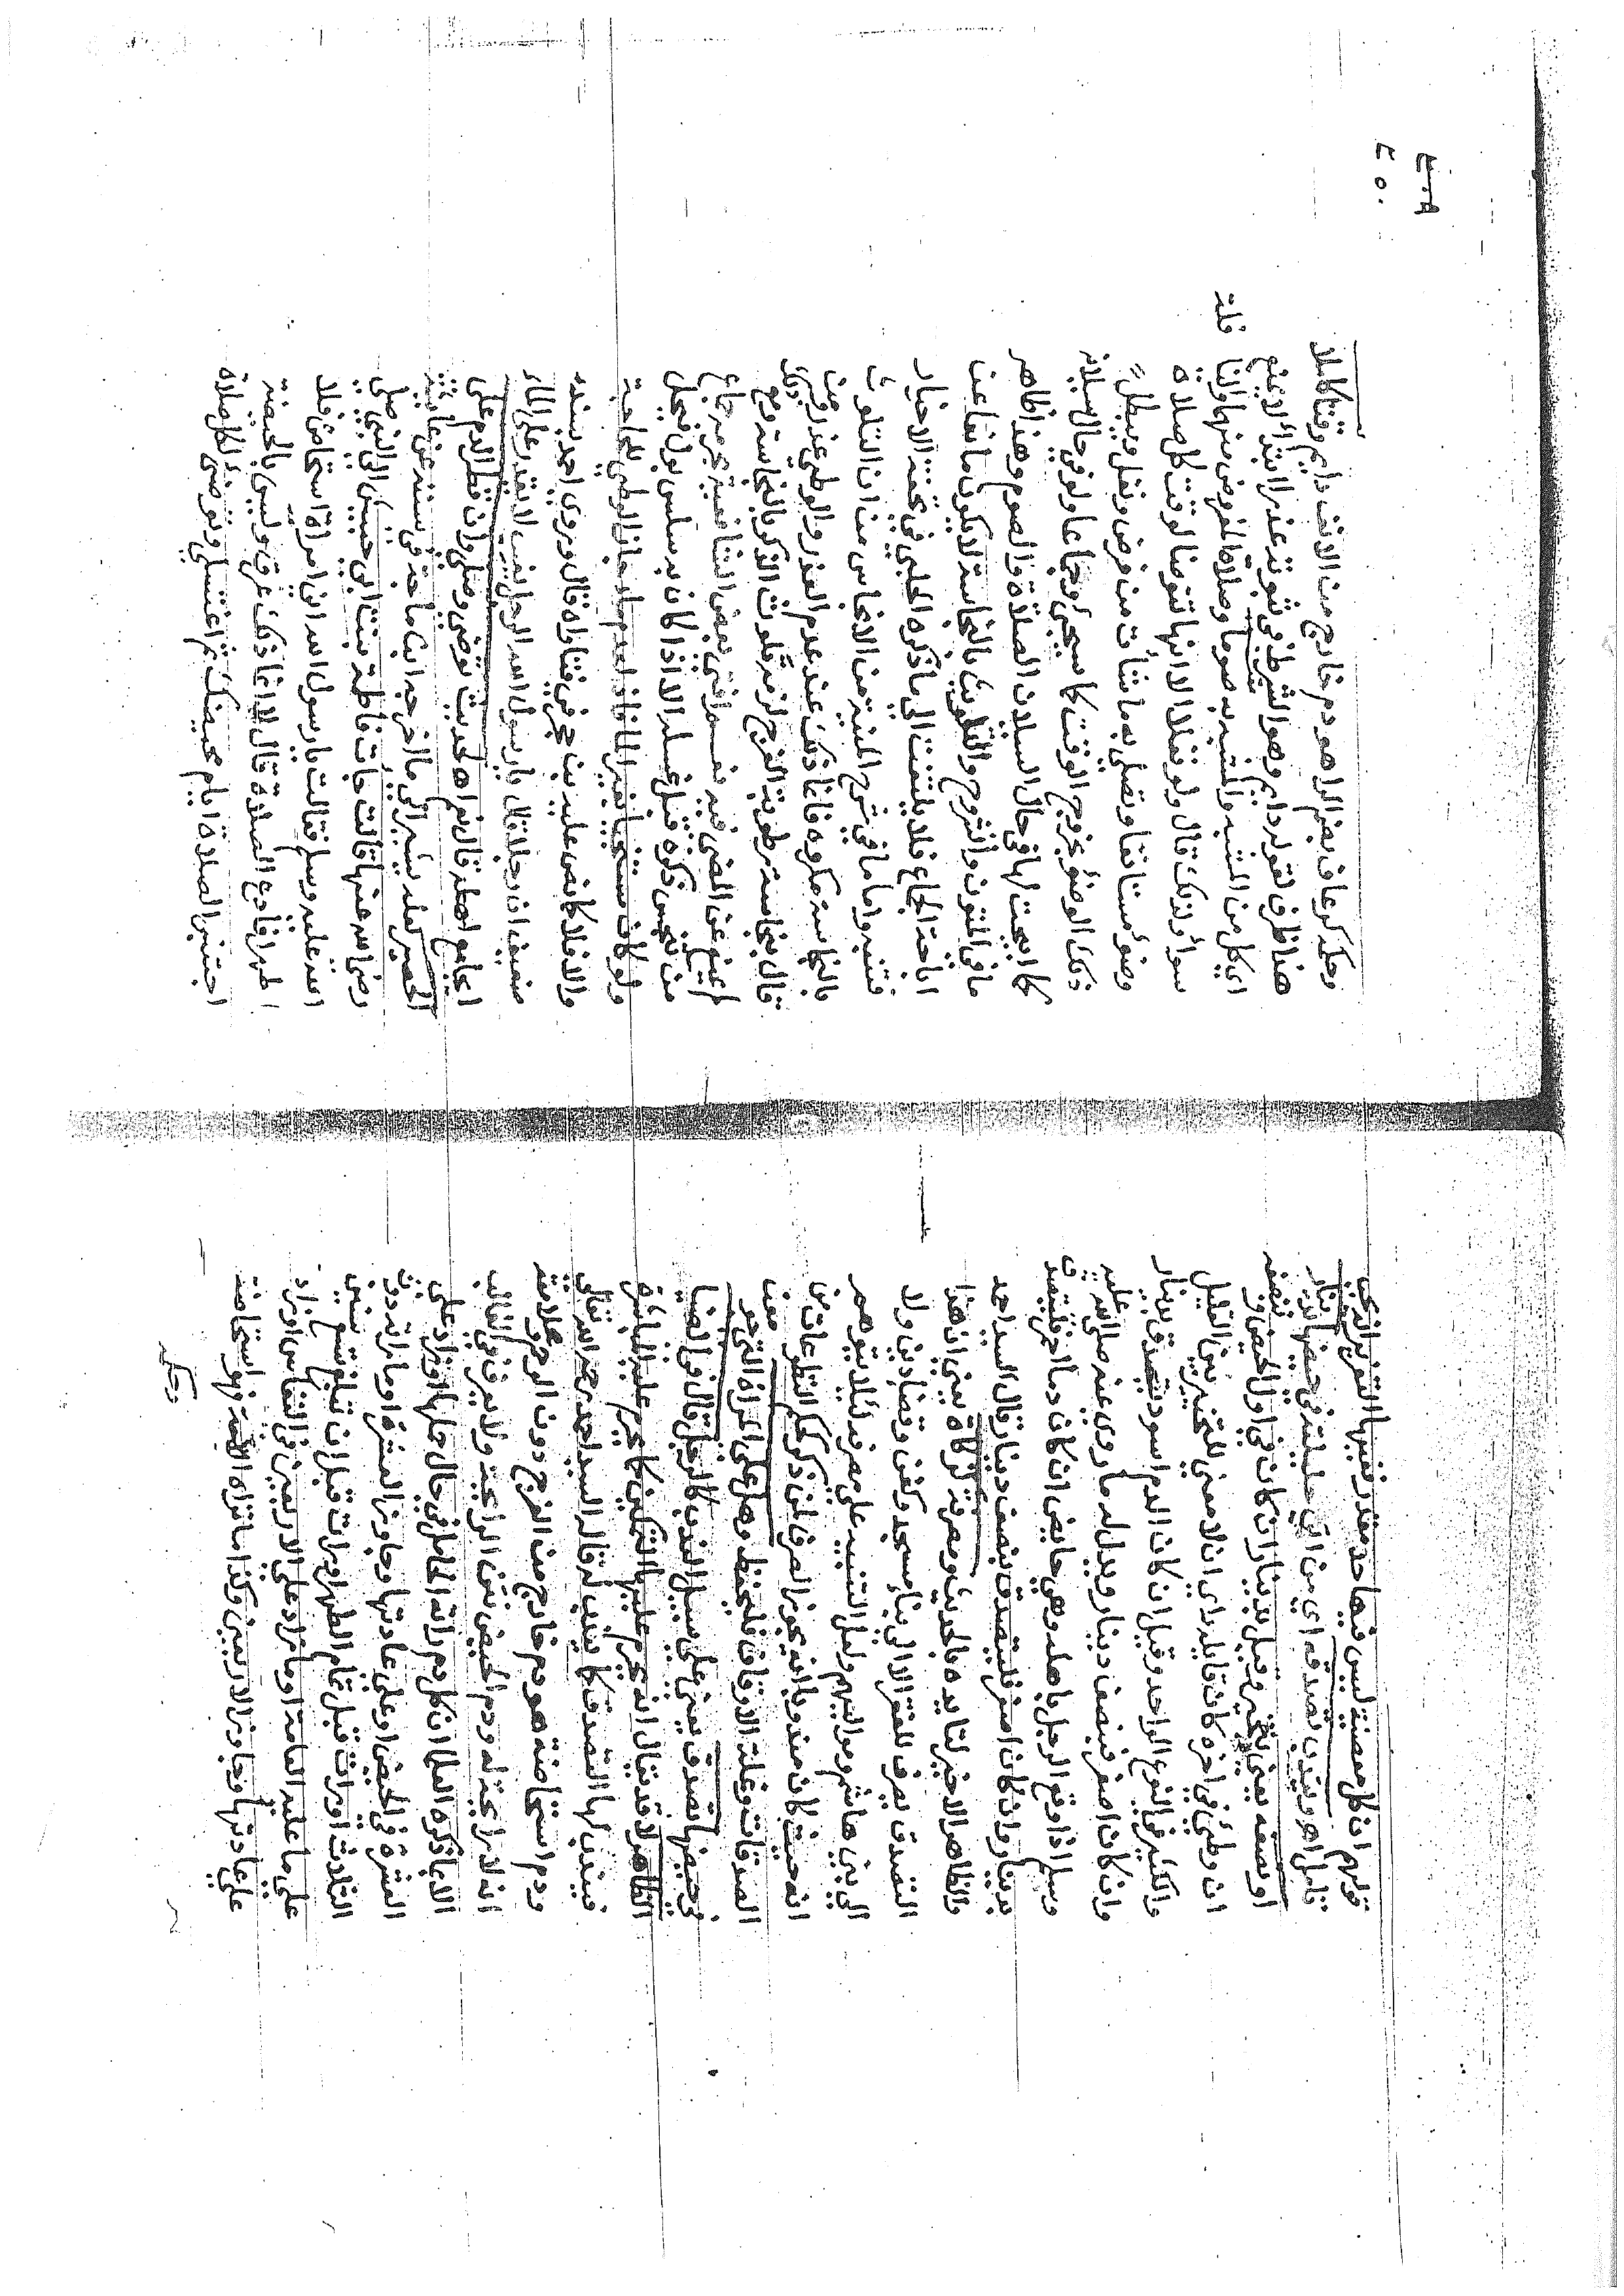 قولهم ان كل معصية ليس فيها حد مقدر ففيها التعزير انتهى
ويندب تصدقه اي من اتى حليلته في حيضها بدينار
او نصفه يعني يخير وقيل بدينار ان كان في اول الحيض وبنصفه
ان وطئ في اخره كان قايله راي ان لا معنى للتخيير بين القليل
والكثير في النوع الواحد وقيل ان كان الدم اسود يتصدق بدينار
وان كان اصفر فبنصف دينار ويدل له ما روي عنه صلى الله عليه
وسلم اذا وقع الرجل باهله وهي حايض ان كان دما احمر فليتصدق
بدينار وان كان اصفر فليتصدق بنصف دينار قال السيد احمد
والظاهر الاخير لتاييده بالحديث ومصرفه كزكاة يعني ان هذا
التصدق يصرف للفقراء لا الى بناء مسجد وكفن وقضاء دين ولا
الى بني هاشم ومواليهم ولعل التنبيه على مصرفه لئلا يتوهم
انه حيث كان مندوبا انه يجوز الصرف لمن ذكر كحكم التطوعات من
الصدقات وغلة الاوقاف فليحفظ وهل على المراة التي جومعت
في حيضها تصدق يعني على سبيل الندب كالرجل قال في الضيا
الظاهر لا قد يقال انه يحرم عليها التمكين كما يحرم عليه المباشرة
فيندب لها التصدق كما يندب له قاله السيد احمد رحمه الله تعالى
ودم استحاضة هو دم خارج من الفرج دون الرحم وعلامته
انه لا رايحة له ودم الحيض نتن الرايحة ولا يعرف في الغالب
الا بما ذكره العلماء ان كل دم راته الحامل في حال حملها او زاد على
العشرة في الحيض او على عادتها وجاوز العشرة او ما راته دون
الثلاث او رات قبل تمام الطهر او رات قبل ان تبلغ تسع سنين
على ما عليه العامة او ما زاد على الاربعين في النفاس او زاد
على عادتها وجاوز الاربعين وكذا ما تراه الايسة فهو استحاضة
وحكمه
٢٥٠
وحكمه كرعاف بضم الراء هو دم خارج من الانف دايم وقتا كاملا
هنا ظرف لقوله دايم وهو الشرط في ثبوته عذرا لابتداء لا يمنع
اي كل من المشبه والمشبه به صوما وصلاة لفرض منهما ولنافلة
سواء ولذلك قال ولو نفلا الا انها تتوضا لوقت كل صلاة
وضوء مستانفا وتصلي به ما شاءت من فرض ونفل ويبطل
ذلك الوضوء بخروج الوقت كما سيجيء وجماعا ولو في حال سيلانه
كما ابيحت لها في حال السيلان الصلاة والصوم وهذا ظاهر
ما في المتون والشروح والتلوث بالنجاسة لا يكون مانعا عن
اباحة الجماع فلا يلتفت الى ما ذكره الحلبي في تحفة الاخيار
فتنبه واما ما في شرح المنية من الانجاس من ان التلوث
بالنجاسة مكروه فانما ذلك عند عدم العذر والوطئ عذر ومن
قال بنجاسة رطوبة الفرج لزمه تلوث الذكر بالنجاسة ومع ذلك
لم يمنع عن المضي فيه نعم افتى بعض الشافعية بحرمة جماع
من تنجس ذكره قبل غسله الا اذا كان به سلس بول فيحل
ولو كان مستنجيا بغير الماء فاقد له حمله جاز له الوطئ للحاجة
والا فلا كما نص عليه بن حجر في فتاواه قال وروى احمد بسند
ضعيف ان رجلا قال يا رسول الله الرجل يغيب لا يقدر على الماء
ايجامع اهله قال نعم لحديث توضئي وصلي وان قطر الدم على
الحصير لعله يشير الى ما اخرجه ابن ماجة في سننه عن عايشة
رضي الله عنها قالت جاءت فاطمة بنت ابي حبيش الى النبي صلى
الله عليه وسلم فقالت يا رسول الله اني امراة استحاض فلا
اطهر افادع الصلاة قال لا انما ذلك عرق وليس بالحيضة
اجتنبي الصلاة ايام محيضك ثم اغتسلي وتوضئي لكل صلاة